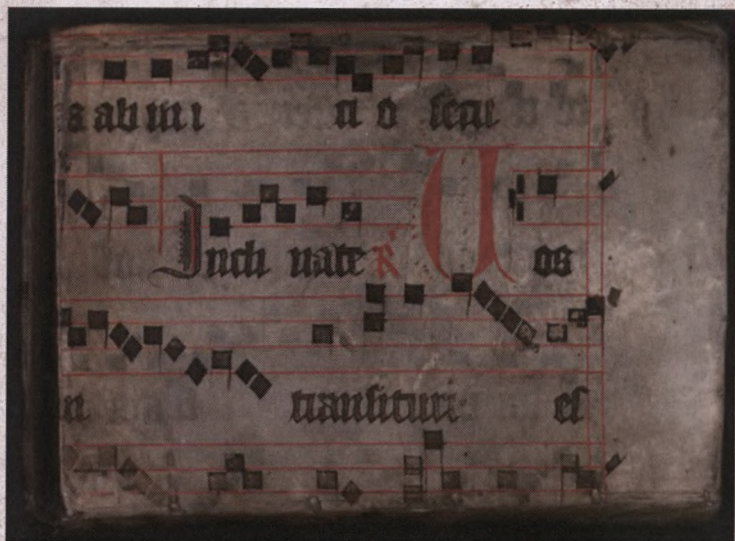 a ab ini ti o secu
Incli nate ℟ Uos
n transituri es